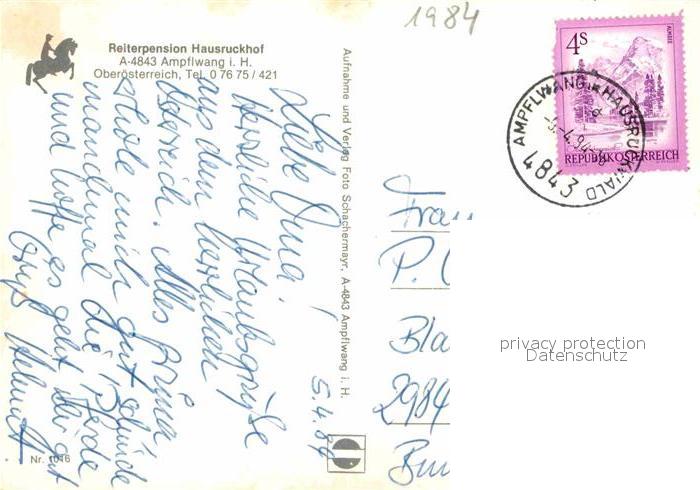 1984
Reiterpension Hausruckhof
A-4843 Ampflwang i. H.
Oberösterreich, Tel. 0 76 75 / 421
Liebe Oma!
Herzliche Urlaubsgrüße
aus dem herrlichen
Österreich. Alles prima
erhole mich gut schinde
manchmal die Pferde
und hoffe es geht Dir gut
Gruß Helmut
5.4.84
Nr. 1016
Aufnahme und Verlag Foto Schachermayr, A-4843 Ampflwang i. H.
4S
ALMSEE
REPUBLIK ÖSTERREICH
AMPFLWANG i. HAUSRUCKWALD
4843
Frau
P.
Bla
2984
privacy protection
Datenschutz